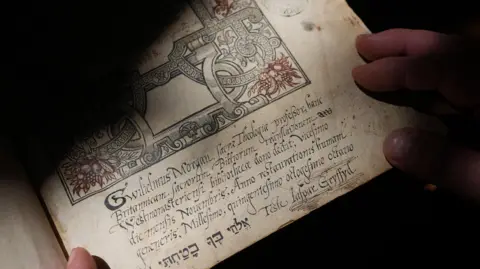 Gwilielmus Morgan, sacræ Theologiæ professor, hanc
Britannicam sacrorum Bibliorum translationem
Westmonasteriensis bibliothecæ dono dedit, Vicesimo
die mensis Novembris: Anno restaurationis humani
generis, Millesimo, quingentesimo octogesimo octavo
Teste Jaspar Gryffyd
אלהי בך בטחתי